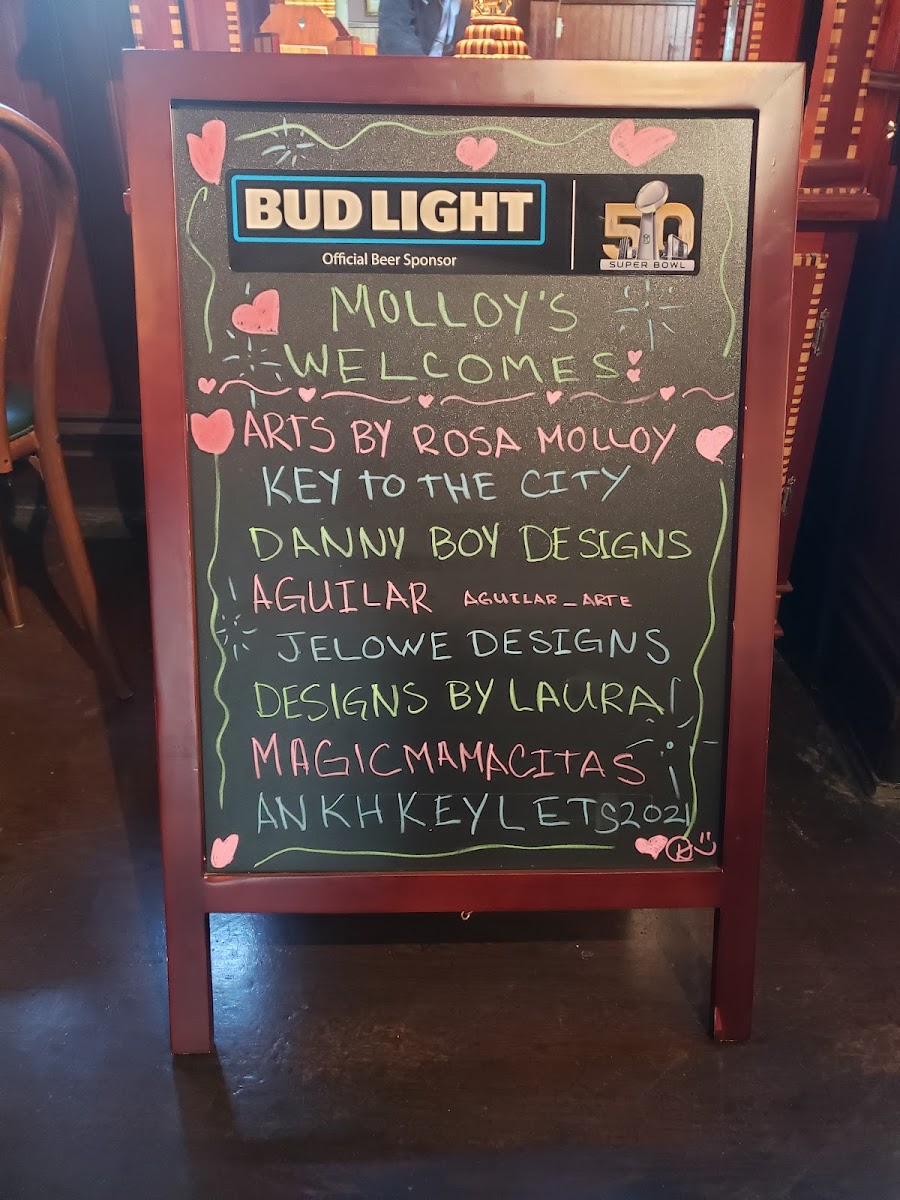 BUD LIGHT
Official Beer Sponsor
50
SUPER BOWL
MOLLOY'S
WELCOMES:
ARTS BY ROSA MOLLOY
KEY TO THE CITY
DANNY BOY DESIGNS
AGUILAR AGUILAR_ARTE
JELOWE DESIGNS
DESIGNS BY LAURA
MAGICMAMACITAS
ANKHKEYLETS2021
K